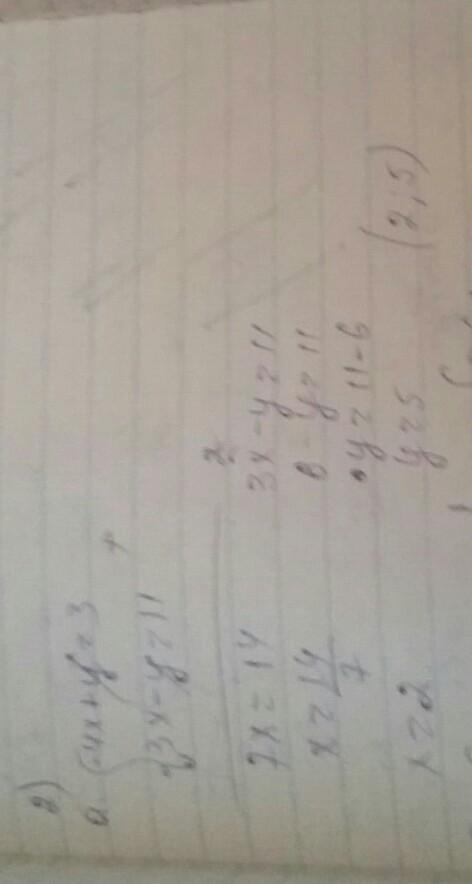 2)
a {4x+y=3
{3x-y=11 +
7x=14
x=14/7
x=2
2
3x-y=11
6-y=11
y=11-6
y=5
(2,5)